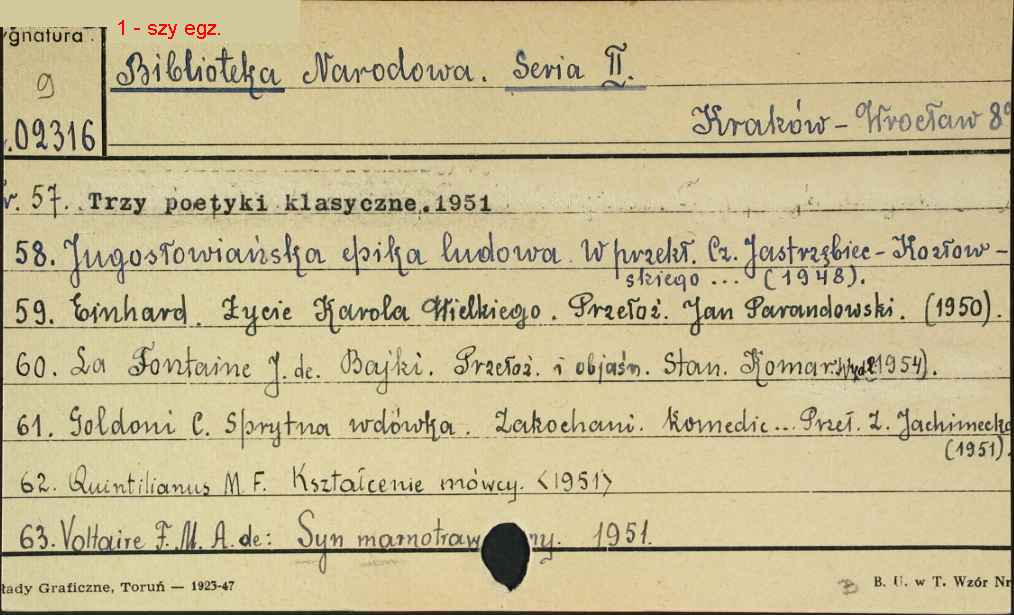 1 - szy egz.
ygnatura
9
.02316
Biblioteka Narodowa. Seria II.
Kraków - Wrocław 8°
r. 57. Trzy poetyki klasyczne. 1951
58. Jugosłowiańska epika ludowa. W przekł. Cz. Jastrzębiec-Kozłow-
skiego ... (1948).
59. Einhard. Życie Karola Wielkiego. Przełoż. Jan Parandowski. (1950).
60. La Fontaine J. de. Bajki. Przełoż. i objaśn. Stan. Komar. Wyd 2 1954).
61. Goldoni C. Sprytna wdówka. Zakochani. Komedie... Przeł. Z. Jachimecka
(1951).
62. Quintilianus M. F. Kształcenie mówcy. <1951>
63. Voltaire F. M. A. de: Syn marnotraw ny. 1951.
łady Graficzne, Toruń — 1923-47
B
B. U. w T. Wzór Nr